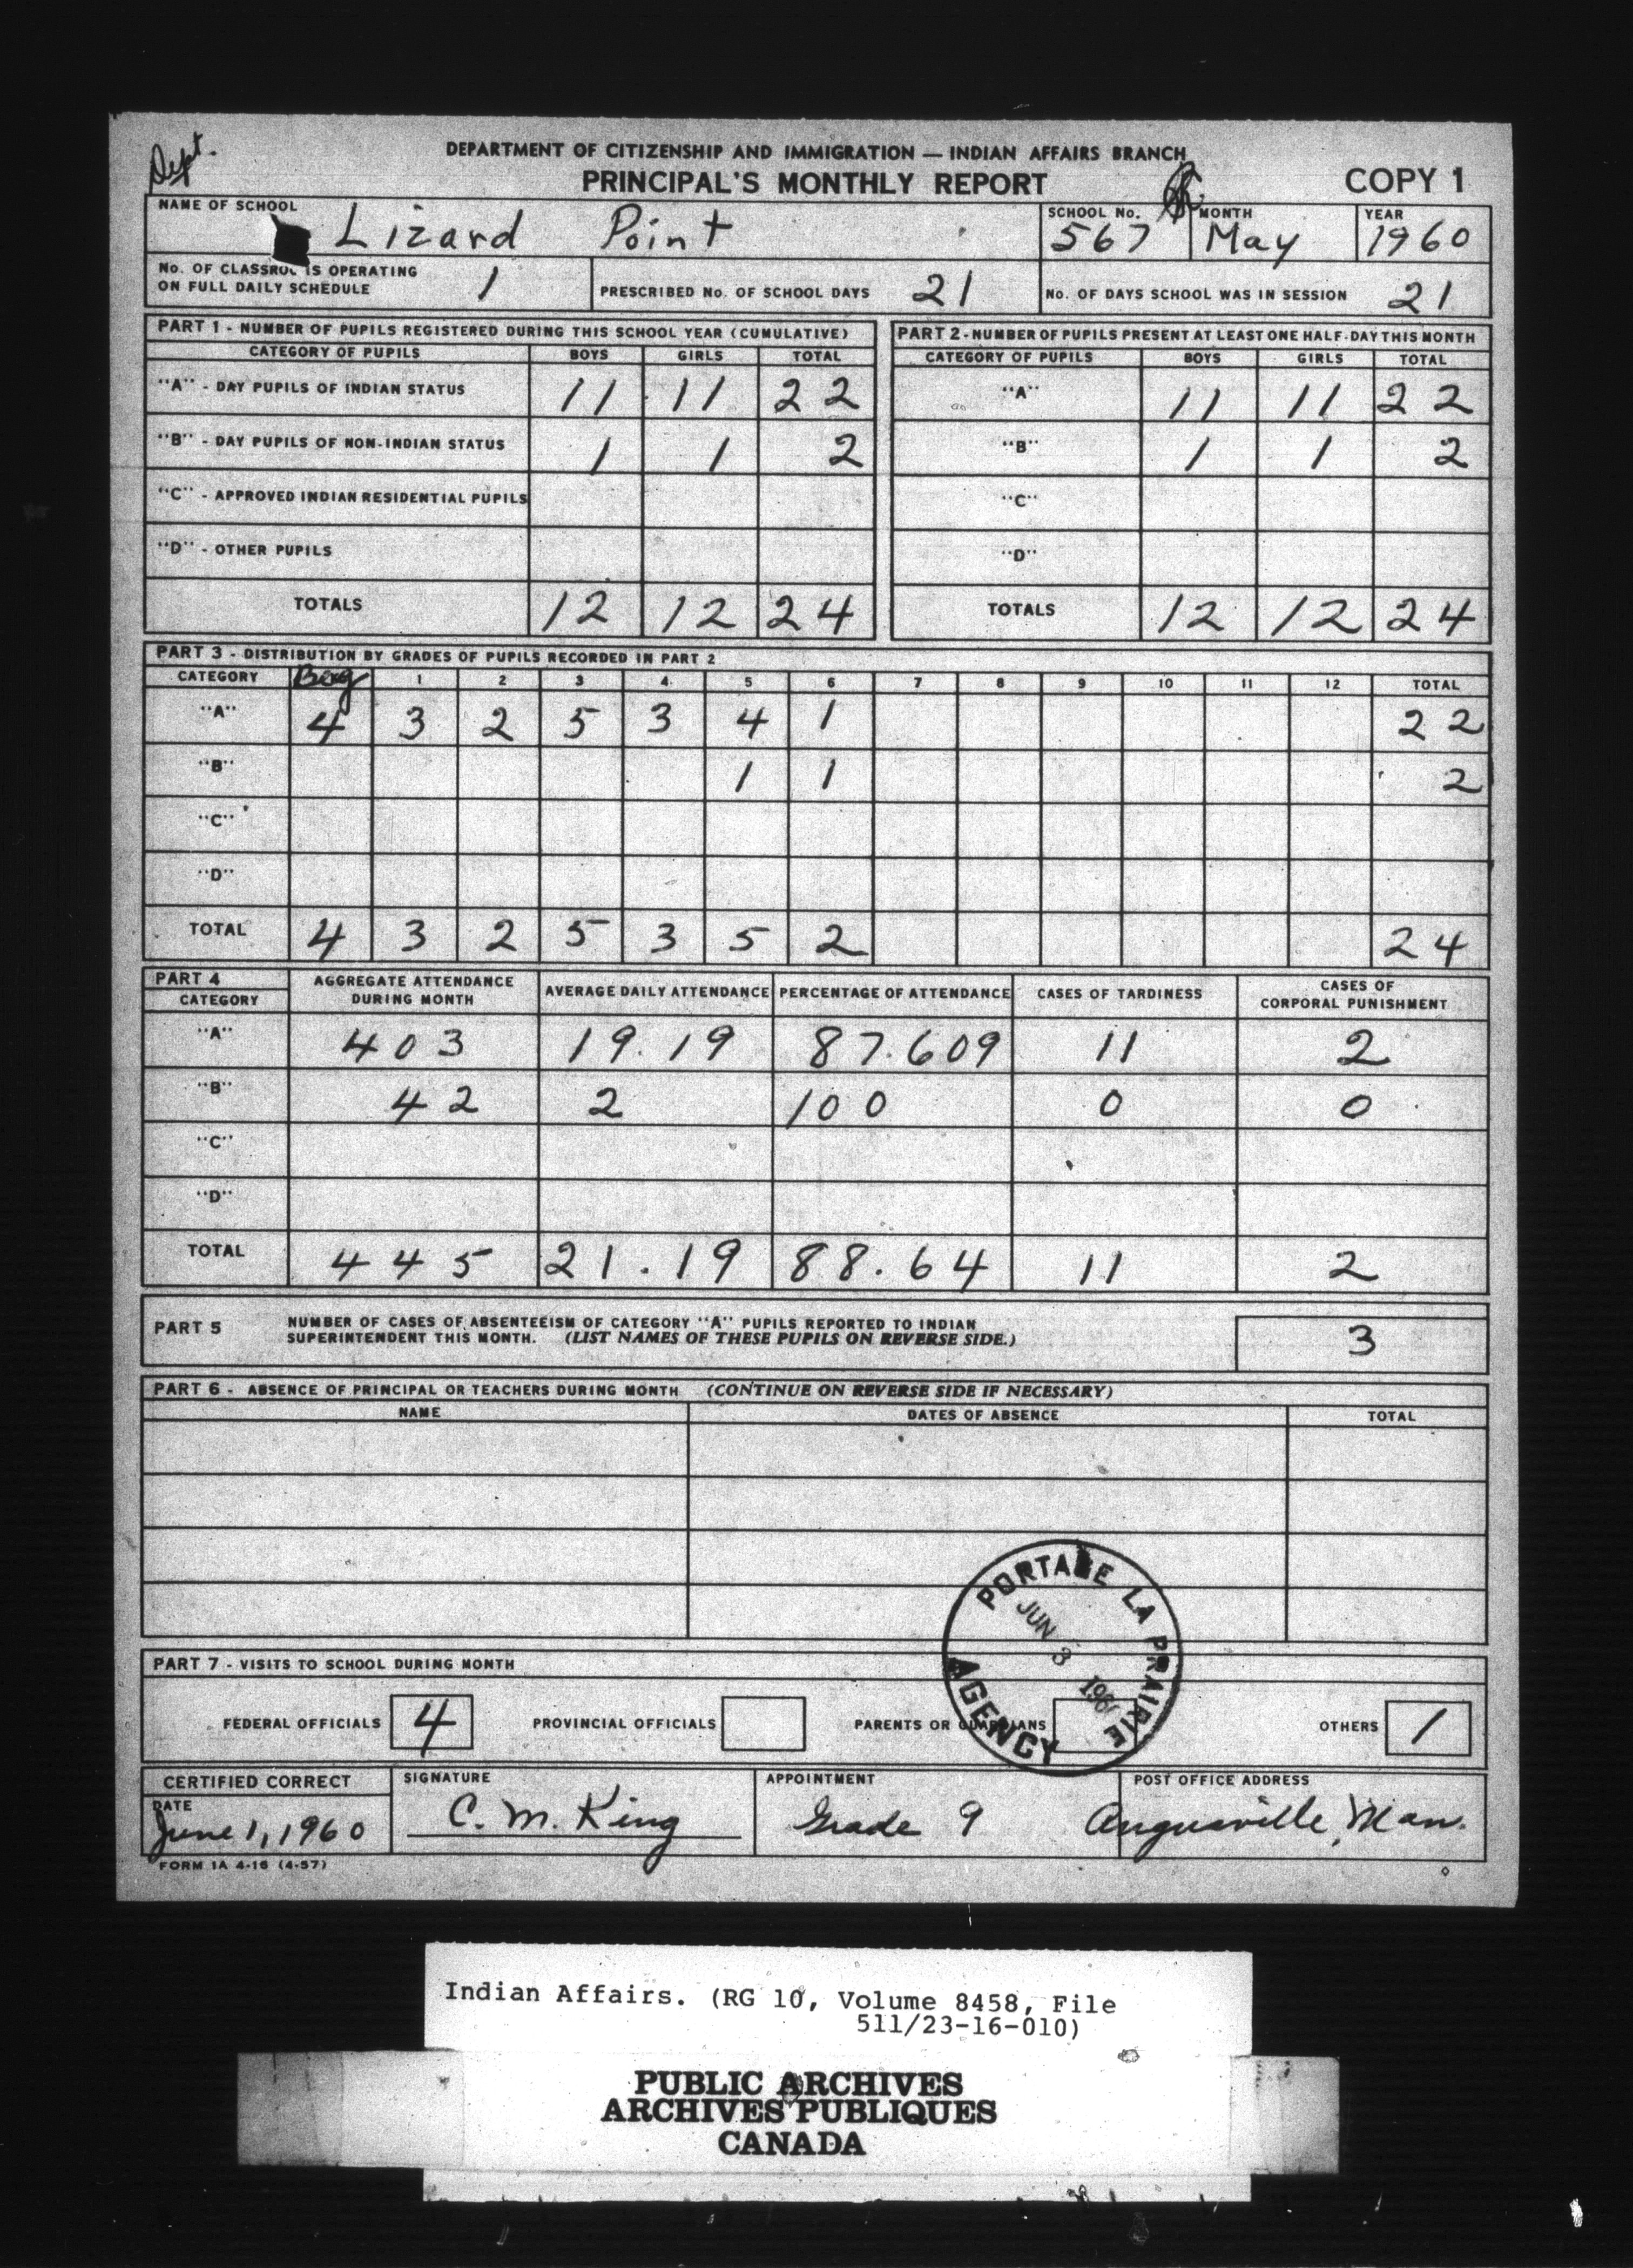 Dept.
DEPARTMENT OF CITIZENSHIP AND IMMIGRATION — INDIAN AFFAIRS BRANCH
PRINCIPAL'S MONTHLY REPORT
COPY 1
NAME OF SCHOOL Lizard Point SCHOOL No. 567 MONTH May YEAR 1960
No. OF CLASSRO IS OPERATING
ON FULL DAILY SCHEDULE 1 PRESCRIBED No. OF SCHOOL DAYS 21 No. OF DAYS SCHOOL WAS IN SESSION 21
PART 1 - NUMBER OF PUPILS REGISTERED DURING THIS SCHOOL YEAR (CUMULATIVE)
CATEGORY OF PUPILS BOYS GIRLS TOTAL
"A" - DAY PUPILS OF INDIAN STATUS 11 11 22
"B" - DAY PUPILS OF NON-INDIAN STATUS 1 1 2
"C" - APPROVED INDIAN RESIDENTIAL PUPILS
"D" - OTHER PUPILS
TOTALS 12 12 24
PART 2 - NUMBER OF PUPILS PRESENT AT LEAST ONE HALF-DAY THIS MONTH
CATEGORY OF PUPILS BOYS GIRLS TOTAL
"A" 11 11 22
"B" 1 1 2
"C"
"D"
TOTALS 12 12 24
PART 3 - DISTRIBUTION BY GRADES OF PUPILS RECORDED IN PART 2
CATEGORY Beg 1 2 3 4 5 6 7 8 9 10 11 12 TOTAL
"A" 4 3 2 5 3 4 1 22
"B" 1 1 2
"C"
"D"
TOTAL 4 3 2 5 3 5 2 24
PART 4
CATEGORY AGGREGATE ATTENDANCE DURING MONTH AVERAGE DAILY ATTENDANCE PERCENTAGE OF ATTENDANCE CASES OF TARDINESS CASES OF CORPORAL PUNISHMENT
"A" 403 19.19 87.609 11 2
"B" 42 2 100 0 0
"C"
"D"
TOTAL 445 21.19 88.64 11 2
PART 5 NUMBER OF CASES OF ABSENTEEISM OF CATEGORY "A" PUPILS REPORTED TO INDIAN
SUPERINTENDENT THIS MONTH. (LIST NAMES OF THESE PUPILS ON REVERSE SIDE.) 3
PART 6 - ABSENCE OF PRINCIPAL OR TEACHERS DURING MONTH (CONTINUE ON REVERSE SIDE IF NECESSARY)
NAME DATES OF ABSENCE TOTAL
PORTAGE LA PRAIRIE
AGENCY
JUN 3 1960
PART 7 - VISITS TO SCHOOL DURING MONTH
FEDERAL OFFICIALS 4 PROVINCIAL OFFICIALS PARENTS OR GUARDIANS OTHERS 1
CERTIFIED CORRECT SIGNATURE APPOINTMENT POST OFFICE ADDRESS
DATE
June 1, 1960 C. M. King Grade 9 Angusville, Man.
FORM 1A 4-16 (4-57)
Indian Affairs. (RG 10, Volume 8458, File
511/23-16-010)
PUBLIC ARCHIVES
ARCHIVES PUBLIQUES
CANADA